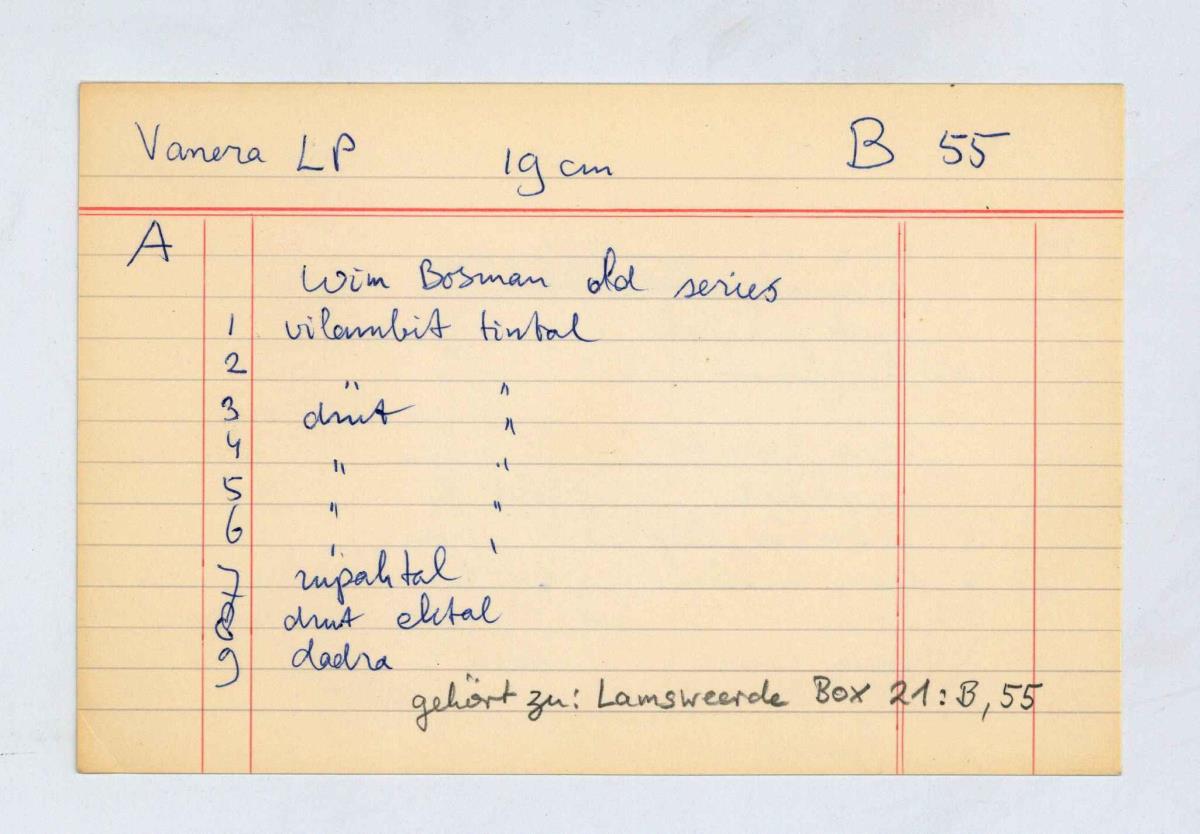 Vanera LP 19 cm B 55
A
Wim Bosman old series
1 vilambit tintal
2 " "
3 drut "
4 " "
5 " "
6 " "
7 rupaktal
8 drut ektal
9 dadra
gehört zu: Lamsweerde Box 21: B, 55